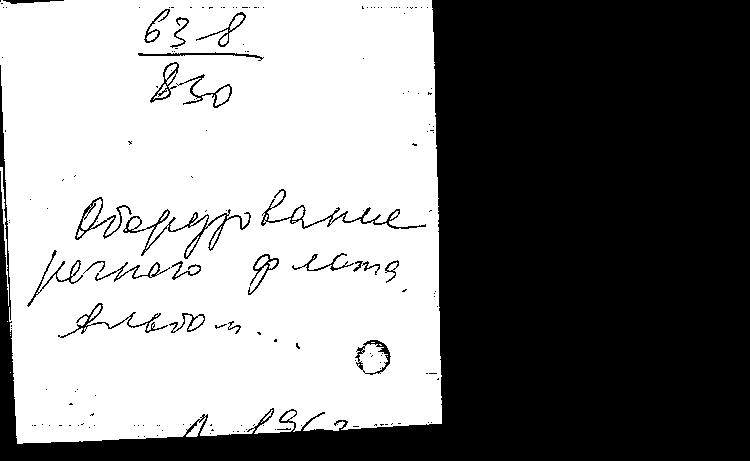 63-8
830
Оборудование
речного флота.
Альбом...